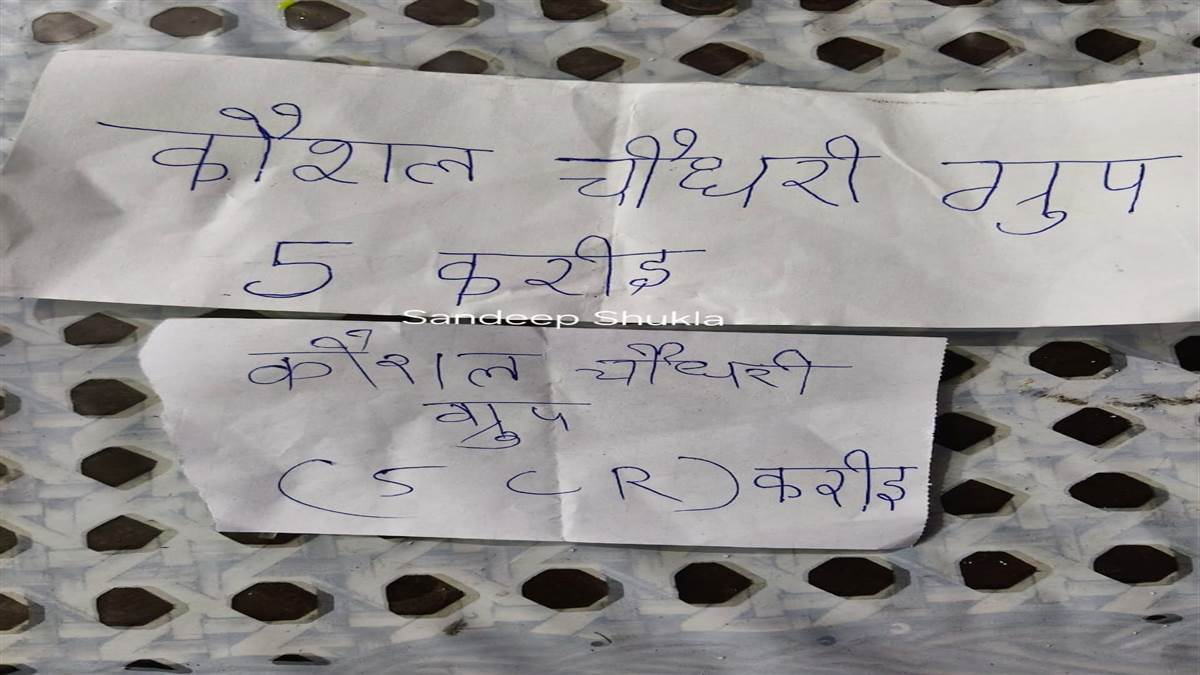 कौशल चौधरी ग्रुप
5 करीड
Sandeep Shukla
कौशल चौधरी
ग्रुप
(5 CR) करीड